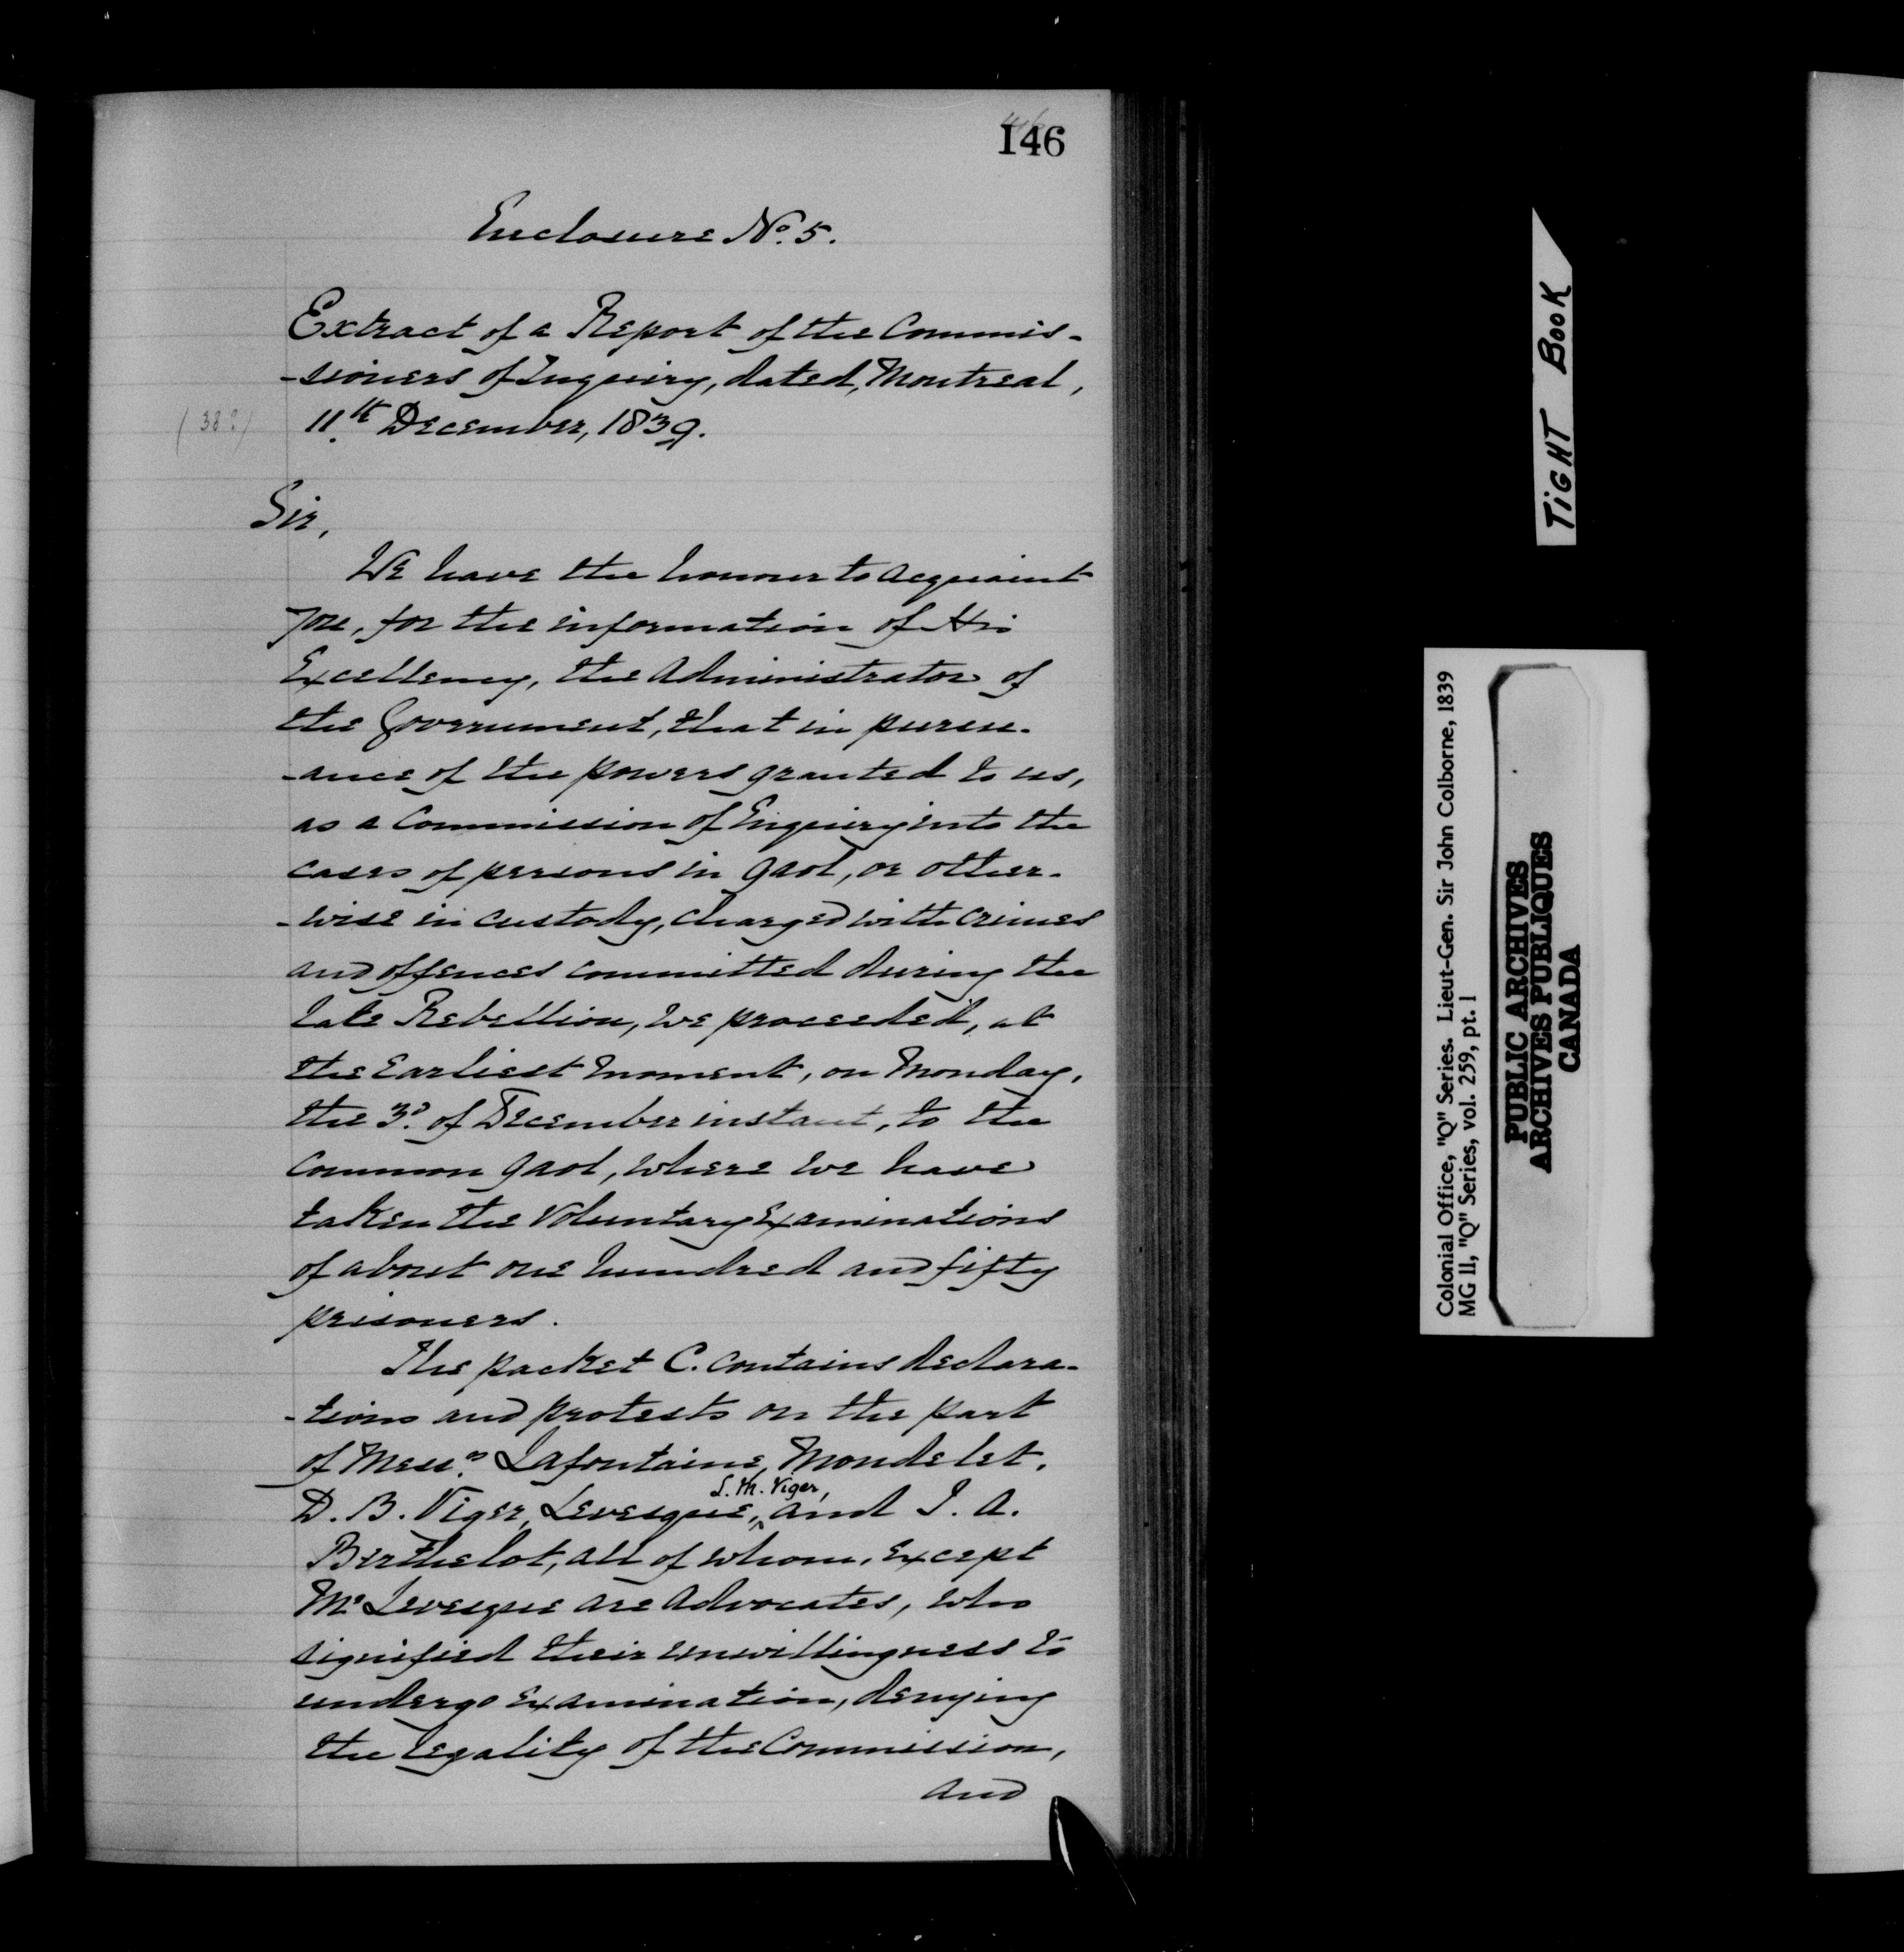 146
Enclosure No. 5.
Extract of a Report of the Commis-
-sioners of Inquiry, dated, Montreal,
(38?)
11th December, 1839.
Sir,
We have the honour to acquaint
you, for the information of His
Excellency, the Administrator of
the Government, that in pursu-
-ance of the powers granted to us,
as a Commission of Enquiry into the
cases of persons in gaol, or other-
-wise in custody, charged with crimes
and offences committed during the
late Rebellion, we proceeded, at
the earliest moment, on Monday,
the 3d. of December instant, to the
common gaol, where we have
taken the voluntary examinations
of about one hundred and fifty
prisoners.
The packet C. contains declara-
-tions and protests on the part
of Messrs. Lafontaine, Mondelet,
L. M. Viger,
D. B. Viger, Levesque, and J. A.
Berthelot, all of whom, except
Mr. Levesque are Advocates, who
signified their unwillingness to
undergo examination, denying
the legality of the Commission,
and
TIGHT BOOK
Colonial Office, "Q" Series. Lieut-Gen. Sir John Colborne, 1839
MG 11, "Q" Series, vol. 259, pt. 1
PUBLIC ARCHIVES
ARCHIVES PUBLIQUES
CANADA